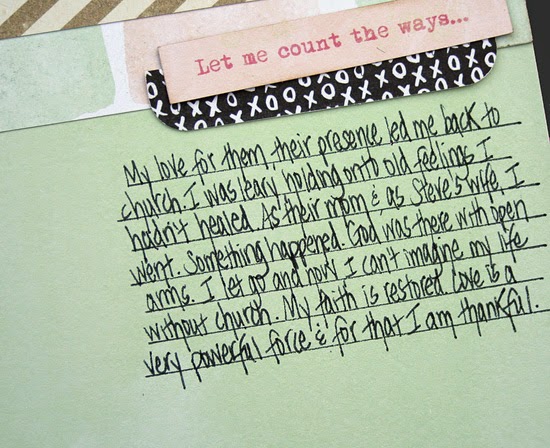 Let me count the ways...
XOXOXO
My love for them, their presence led me back to
church. I was leary, holding onto old feelings I
hadn't healed. As their mom & as Steve's wife, I
went. Something happened. God was there with open
arms. I let go and now I can't imagine my life
without church. My faith is restored. Love is a
very powerful force & for that I am thankful.